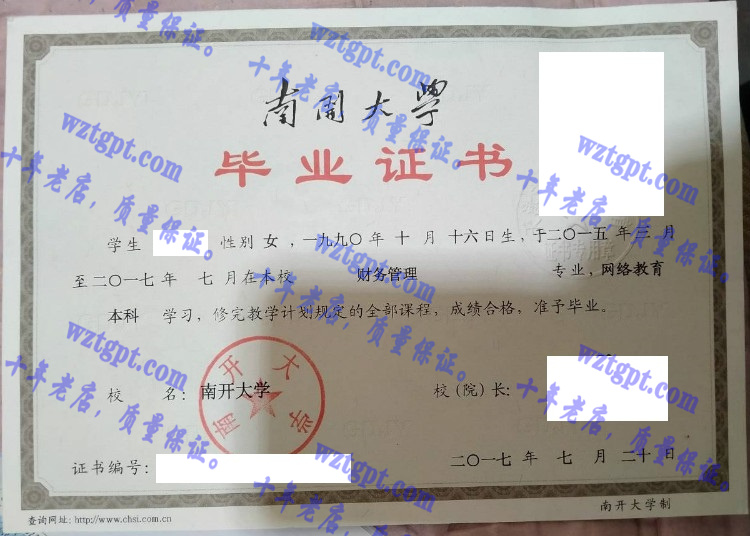 南开大学
毕业证书
学生 性别 女 ，一九九〇 年 十 月 十六日生，于二〇一五 年 三 月
至二〇一七 年 七 月在本校 财务管理 专业，网络教育
本科 学习，修完教学计划规定的全部课程，成绩合格，准予毕业。
校 名：南开大学 校（院）长：
南开大学
证书编号： 二〇一七 年 七 月 二十 日
查询网址：http://www.chsi.com.cn 南开大学制
wztgpt.com
十年老店，质量保证。
wztgpt.com
十年老店，质量保证。
wztgpt.com
十年老店，质量保证。
wztgpt.com
十年老店，质量保证。
wztgpt.com
十年老店，质量保证。
wztgpt.com
十年老店，质量保证。
wztgpt.com
十年老店，质量保证。